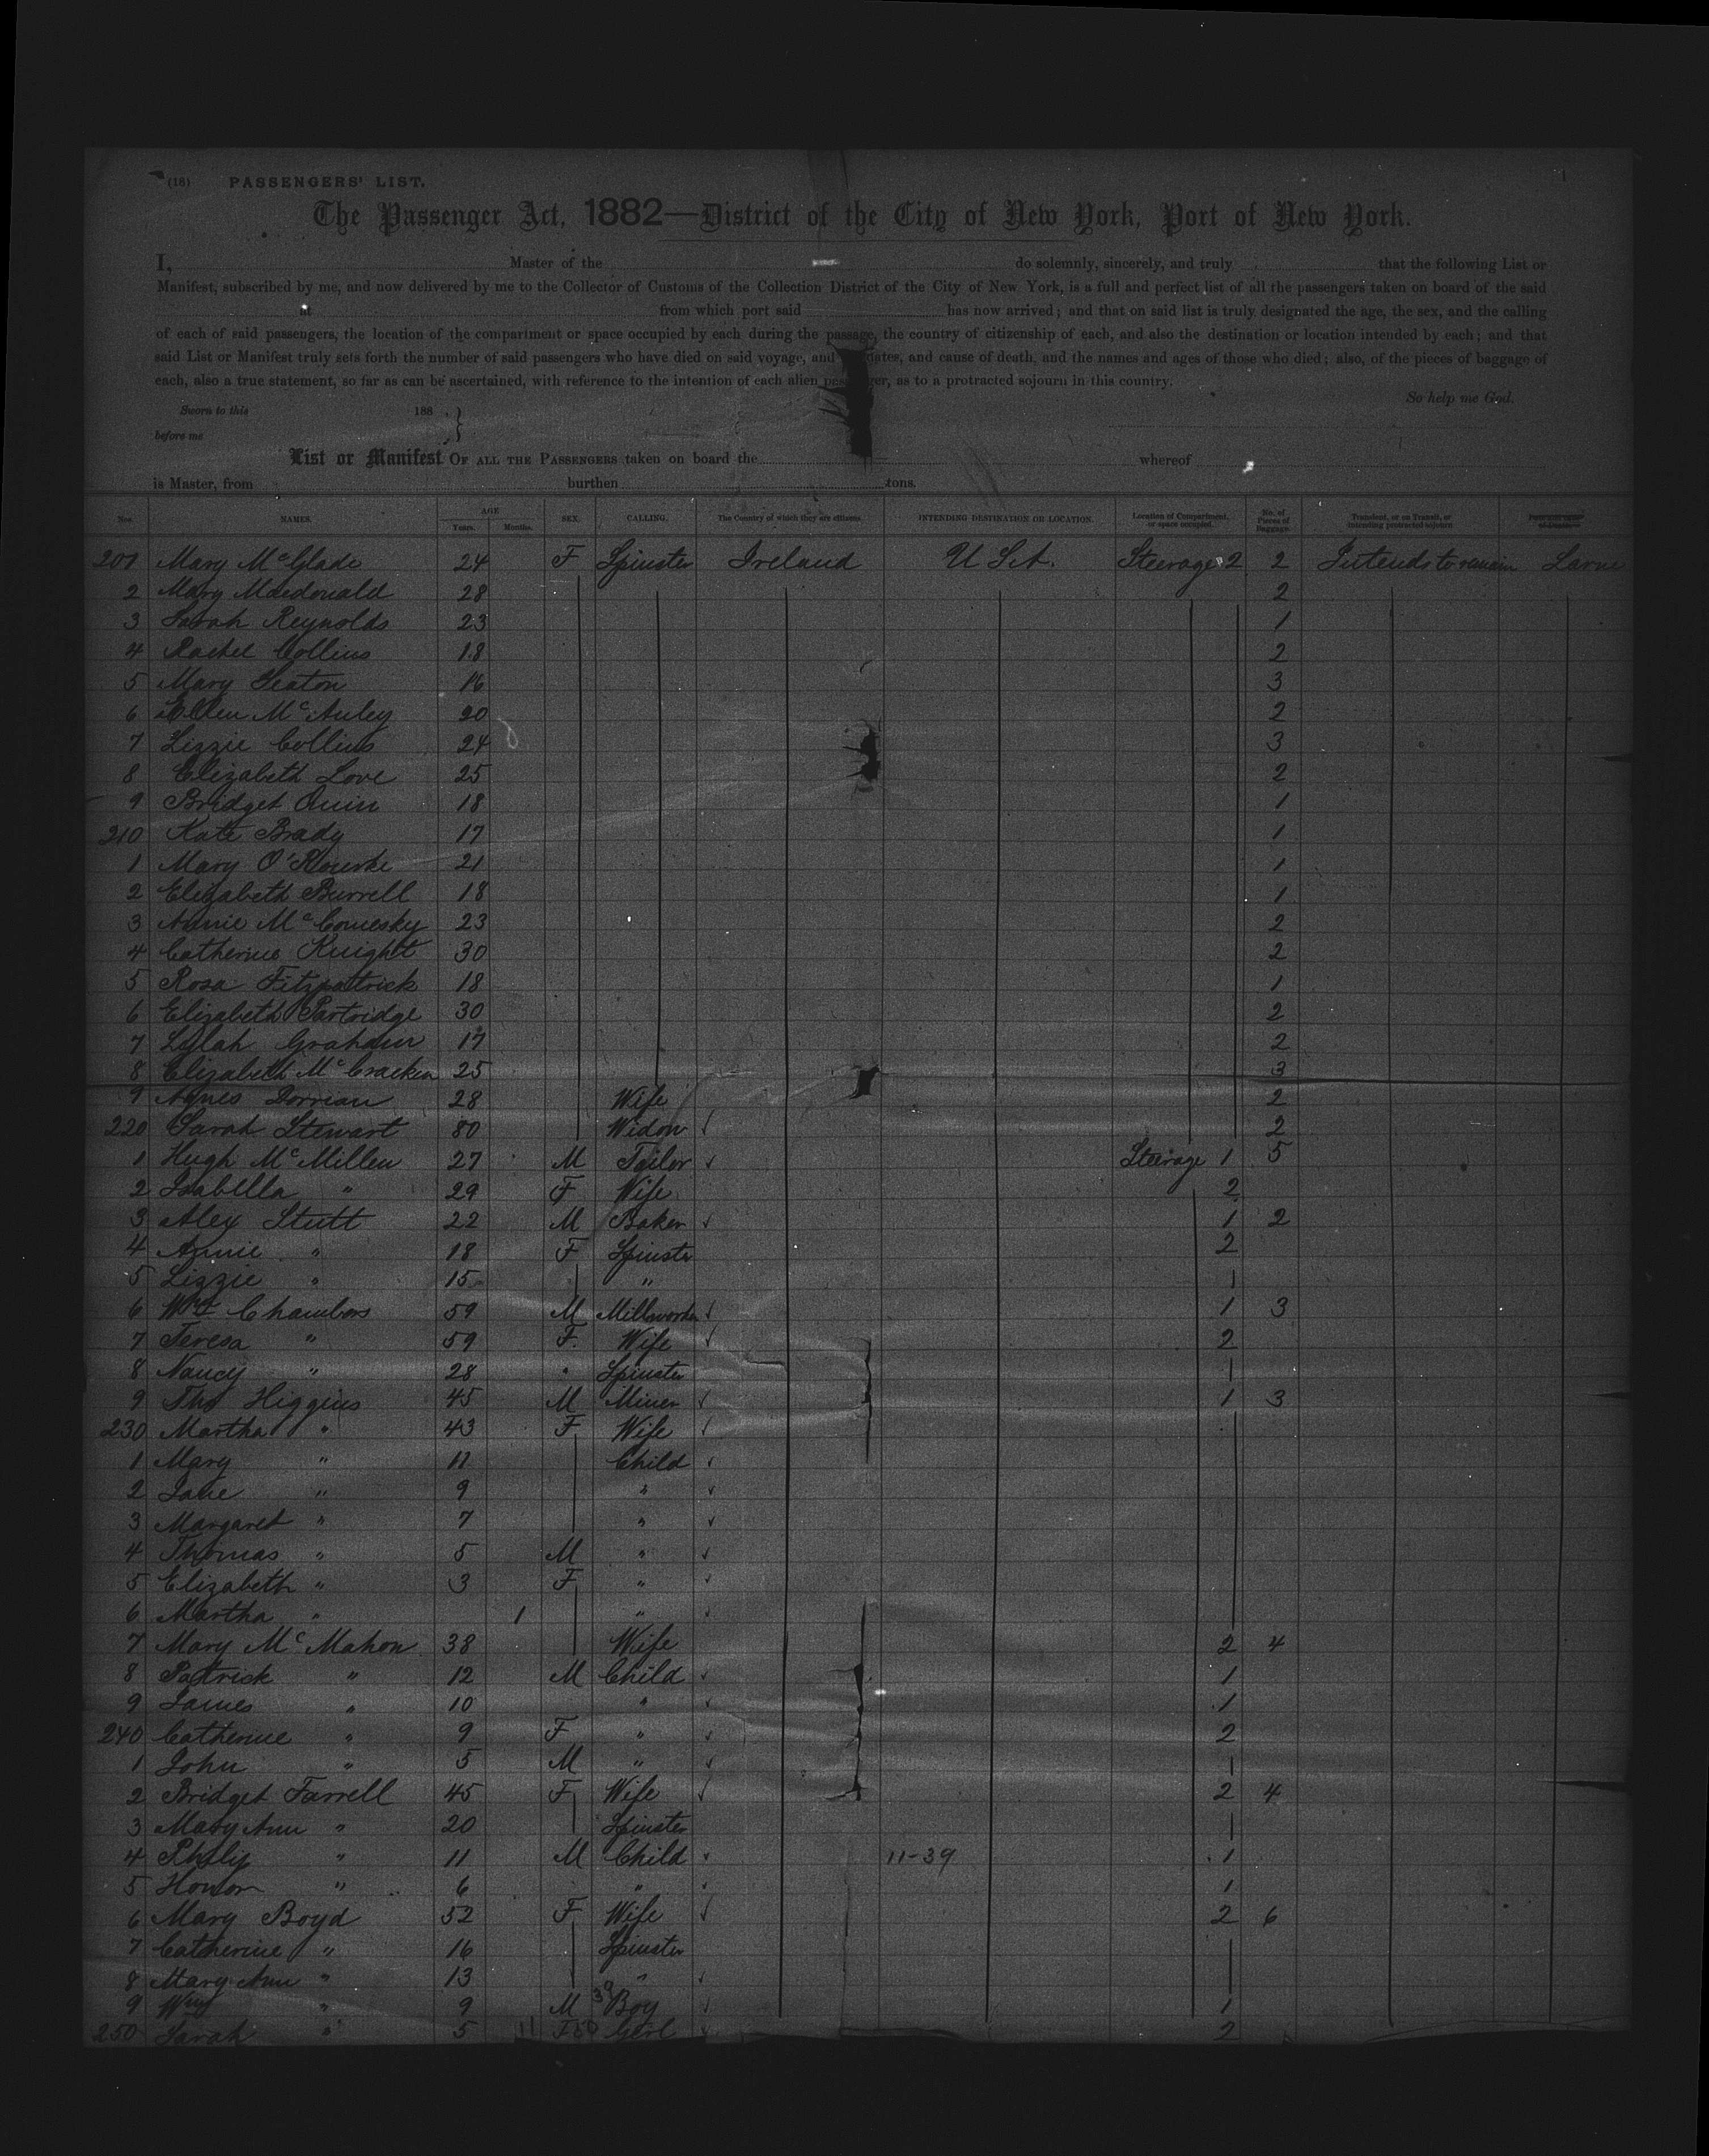 (18) PASSENGERS' LIST. 1
The Passenger Act, 1882—District of the City of New York, Port of New York.
I, Master of the do solemnly, sincerely, and truly that the following List or
Manifest, subscribed by me, and now delivered by me to the Collector of Customs of the Collection District of the City of New York, is a full and perfect list of all the passengers taken on board of the said
at from which port said has now arrived; and that on said list is truly designated the age, the sex, and the calling
of each of said passengers, the location of the compartment or space occupied by each during the passage, the country of citizenship of each, and also the destination or location intended by each; and that
said List or Manifest truly sets forth the number of said passengers who have died on said voyage, and dates, and cause of death, and the names and ages of those who died; also, of the pieces of baggage of
each, also a true statement, so far as can be ascertained, with reference to the intention of each alien passenger, as to a protracted sojourn in this country.
So help me God.
Sworn to this 188
before me
List or Manifest OF ALL THE PASSENGERS taken on board the whereof
is Master, from burthen tons.
Nos. NAMES. AGE Years. Months. SEX. CALLING. The Country of which they are citizens. INTENDING DESTINATION OR LOCATION. Location of Compartment, or space occupied. No. of Pieces of Baggage. Transient, or in Transit, or intending protracted sojourn
201 Mary McGlade 24 F Spinster Ireland U S A. Steerage 2 2 Intends to remain Larne
2 Mary Macdonald 28 2
3 Sarah Reynolds 23 1
4 Rachel Collins 18 2
5 Mary Heaton 16 3
6 Ellen McAuley 20 2
7 Lizzie Collins 24 3
8 Elizabeth Love 25 2
9 Bridget Quin 18 1
210 Kate Brady 17 1
1 Mary O'Rourke 21 1
2 Elizabeth Burrell 18 1
3 Annie McComesky 23 2
4 Catherine Knight 30 2
5 Rosa Fitzpattrick 18 1
6 Elizabeth Partridge 30 2
7 Lylah Graham 17 2
8 Elizabeth McCracken 25 3
9 Agnes Dorrian 28 Wife 2
220 Sarah Stewart 80 Widow 2
1 Hugh McMillen 27 M Tailor Steerage 1 5
2 Isabella " 29 F Wife 2
3 Alex Stutt 22 M Baker 1 2
4 Annie " 18 F Spinster 2
5 Lizzie " 15 "
6 Wm Chambers 59 M Millworker 1 3
7 Teresa " 59 F Wife 2
8 Nancy " 28 " Spinster
9 Thos Higgins 45 M Miner 1 3
230 Martha " 43 F Wife
1 Mary " 11 Child
2 Jane " 9 "
3 Margaret " 7 "
4 Thomas " 5 M "
5 Elizabeth " 3 F "
6 Martha " 1 "
7 Mary McMahon 38 Wife 2 4
8 Patrick " 12 M Child 1
9 James " 10 " 1
240 Catherine " 9 F " 2
1 John " 5 M " 1
2 Bridget Farrell 45 F Wife 2 4
3 Mary Ann " 20 Spinster
4 Philip " 11 M Child 11-39 1
5 Honor " 6 " 1
6 Mary Boyd 52 F Wife 2 6
7 Catherine " 16 Spinster
8 Mary Ann " 13 "
9 Wm " 9 M 39 Boy 1
250 Sarah " 5 11 F 50 Girl 2